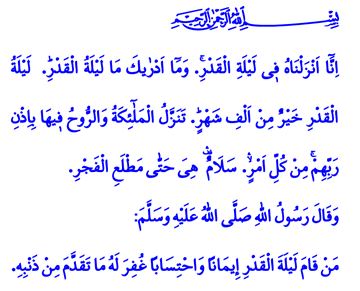 بِسْمِ اللهِ الرَّحْمٰنِ الرَّحِيمِ
اِنَّٓا اَنْزَلْنَاهُ فٖى لَيْلَةِ الْقَدْرِۚ. وَمَٓا اَدْرٰيكَ مَا لَيْلَةُ الْقَدْرِؕ. لَيْلَةُ
الْقَدْرِ خَيْرٌ مِنْ اَلْفِ شَهْرٍؕ. تَنَزَّلُ الْمَلٰٓئِكَةُ وَالرُّوحُ فٖيهَا بِاِذْنِ
رَبِّهِمْۚ مِنْ كُلِّ اَمْرٍۙ. سَلَامٌࣞ هِىَ حَتّٰى مَطْلَعِ الْفَجْرِ.
وَقَالَ رَسُولُ اللهِ صَلَّى اللهُ عَلَيْهِ وَسَلَّمَ:
مَنْ قَامَ لَيْلَةَ الْقَدْرِ اِيمَانًا وَاحْتِسَابًا غُفِرَ لَهُ مَا تَقَدَّمَ مِنْ ذَنْبِهِ.